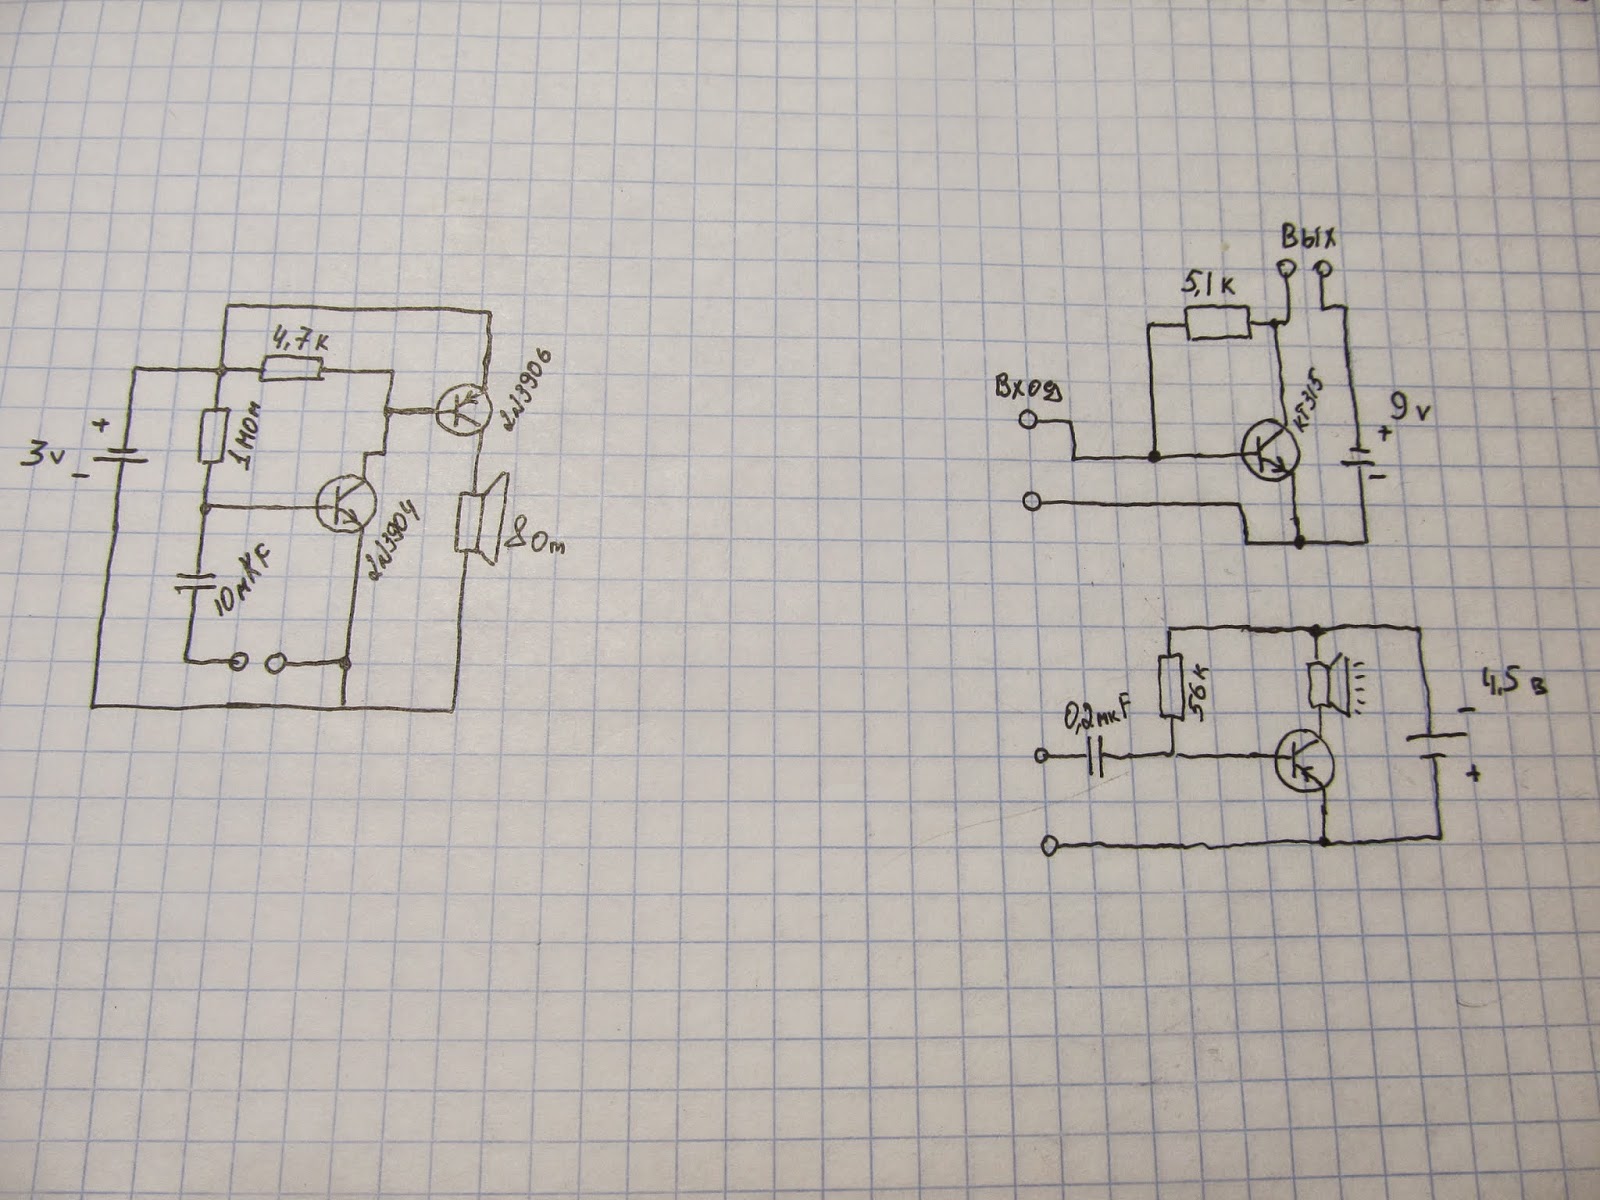 4,7к
+
3v
-
1МОм
10мкF
2N3906
2N3904
8Ом
Вых
5,1к
Вход
КТ315
+
9v
-
0,2мкF
56к
4,5в
-
+